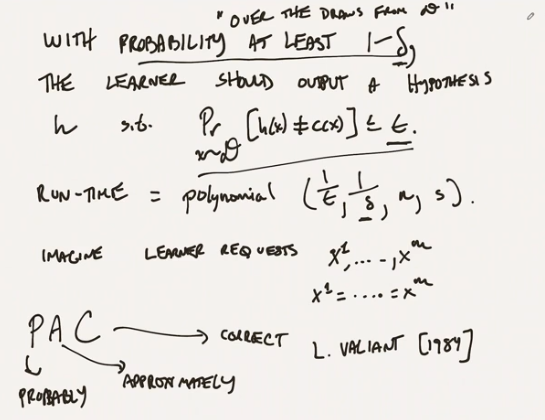 "OVER THE DRAWS FROM D"
WITH PROBABILITY AT LEAST 1-δ,
THE LEARNER SHOULD OUTPUT A HYPOTHESIS
h s.t. Pr x~D [h(x) ≠ c(x)] ≤ ε.
RUN-TIME = polynomial (1/ε, 1/δ, n, s).
IMAGINE LEARNER REQUESTS x¹, ..., xᵐ
x¹ = .... = xᵐ
PAC → CORRECT L. VALIANT [1984]
APPROXIMATELY
PROBABLY